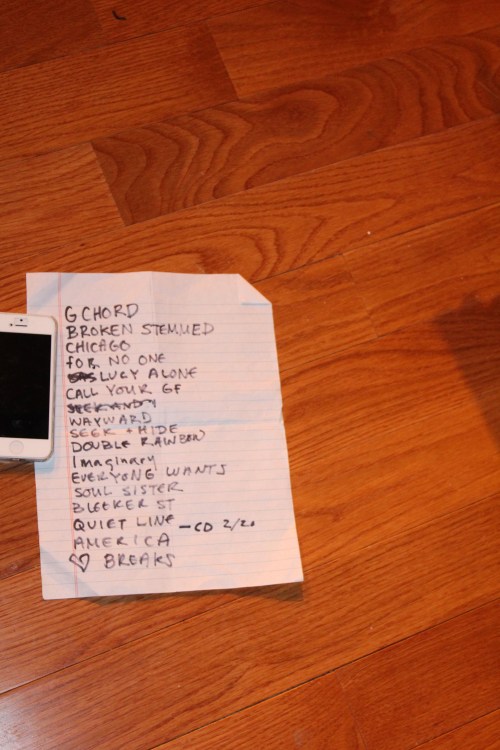 G CHORD
BROKEN STEMMED
CHICAGO
fOR NO ONE
LUCY ALONE
CALL YOUR GF
WAYWARD
SEEK + HIDE
DOUBLE RAINBOW
Imaginary
EVERYONE WANTS
SOUL SISTER
BLEEKER ST
QUIET LINE – CD 2/20
AMERICA
♡ BREAKS